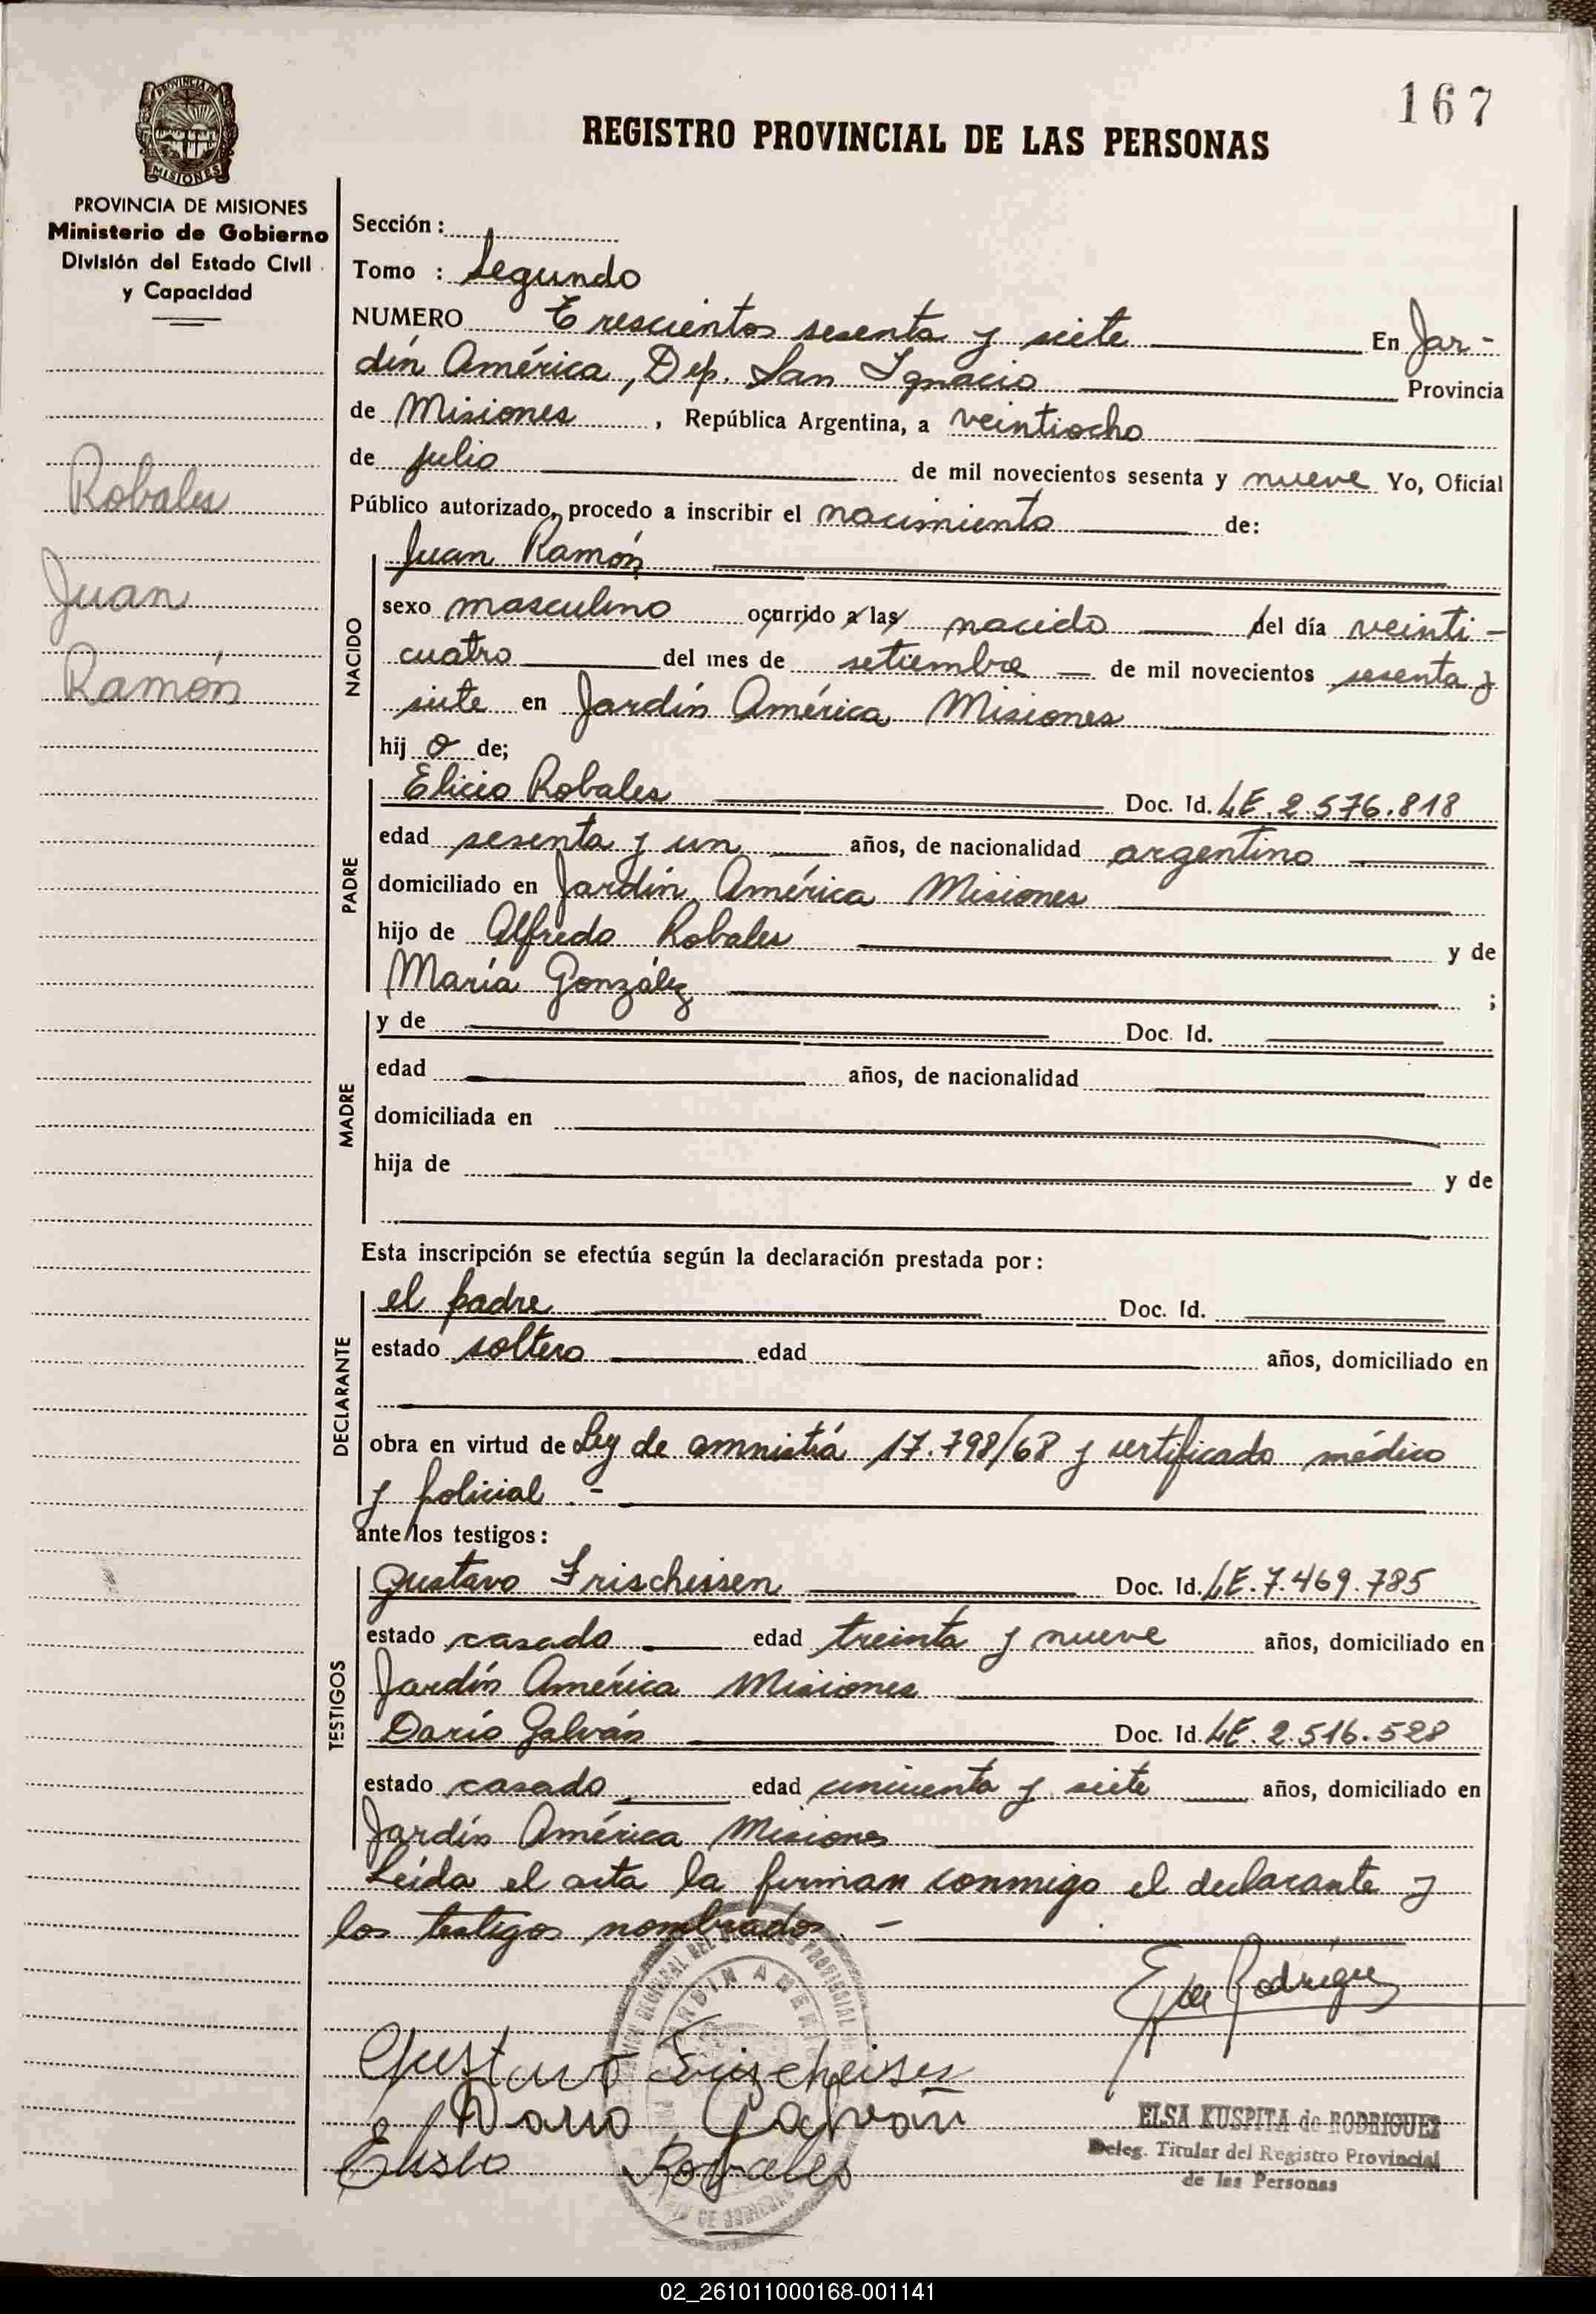 167
PROVINCIA DE
MISIONES
REGISTRO PROVINCIAL DE LAS PERSONAS
PROVINCIA DE MISIONES
Ministerio de Gobierno
División del Estado Civil
y Capacidad
Robales
Juan
Ramón
Sección :
Tomo : Segundo
NUMERO Trescientos sesenta y siete En Jar-
dín América, Dep. San Ignacio Provincia
de Misiones , República Argentina, a veintiocho
de julio de mil novecientos sesenta y nueve Yo, Oficial
Público autorizado, procedo a inscribir el nacimiento de:
NACIDO
Juan Ramón
sexo masculino ocurrido a las nacido del día veinti-
cuatro del mes de setiembre de mil novecientos sesenta y
siete en Jardín América Misiones
hij o de;
PADRE
Elicio Robales Doc. Id. LE. 2.576.818
edad sesenta y un años, de nacionalidad argentino
domiciliado en Jardín América Misiones
hijo de Alfredo Robales y de
María González ;
MADRE
y de Doc. Id.
edad años, de nacionalidad
domiciliada en
hija de y de
Esta inscripción se efectúa según la declaración prestada por:
DECLARANTE
el padre Doc. Id.
estado soltero edad años, domiciliado en
obra en virtud de Ley de amnistiá 17.798/68 y certificado médico
y policial .-
ante los testigos:
TESTIGOS
Gustavo Frischeissen Doc. Id. LE. 7.469.785
estado casado edad treinta y nueve años, domiciliado en
Jardín América Misiones
Darío Galván Doc. Id. LE. 2.516.528
estado casado edad cincuenta y siete años, domiciliado en
Jardín América Misiones
Leída el acta la firman conmigo el declarante y
los testigos nombrados. -
JARDIN AMERICA
Rodríguez
Gustavo Frischeissen
Dario Galván
Robales
ELSA KUSPITA de RODRIGUEZ
Deleg. Titular del Registro Provincial
de las Personas
02_261011000168-001141